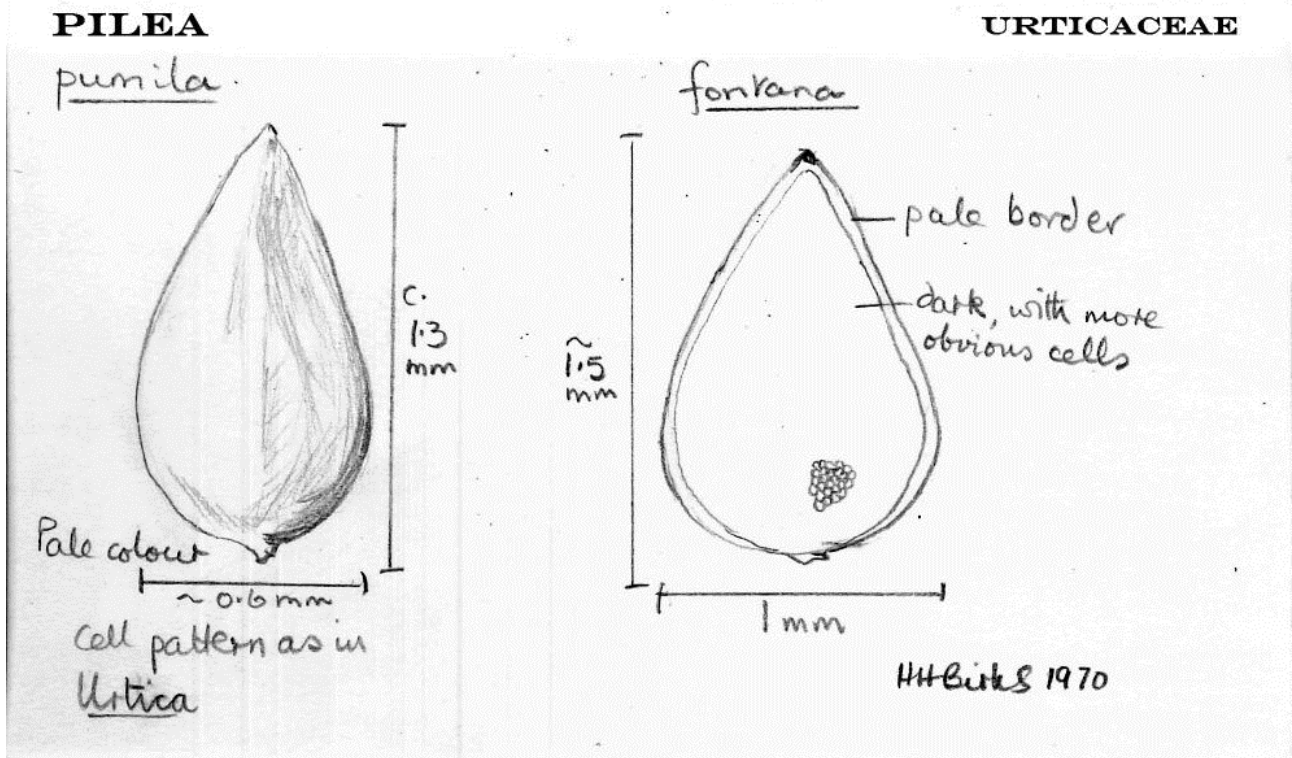 PILEA
URTICACEAE
pumila.
fontana
c.
1.3
mm
Pale colour
~ 0.6 mm
Cell pattern as in
Urtica
~
1.5
mm
pale border
dark, with more
obvious cells
1 mm
HHBirks 1970